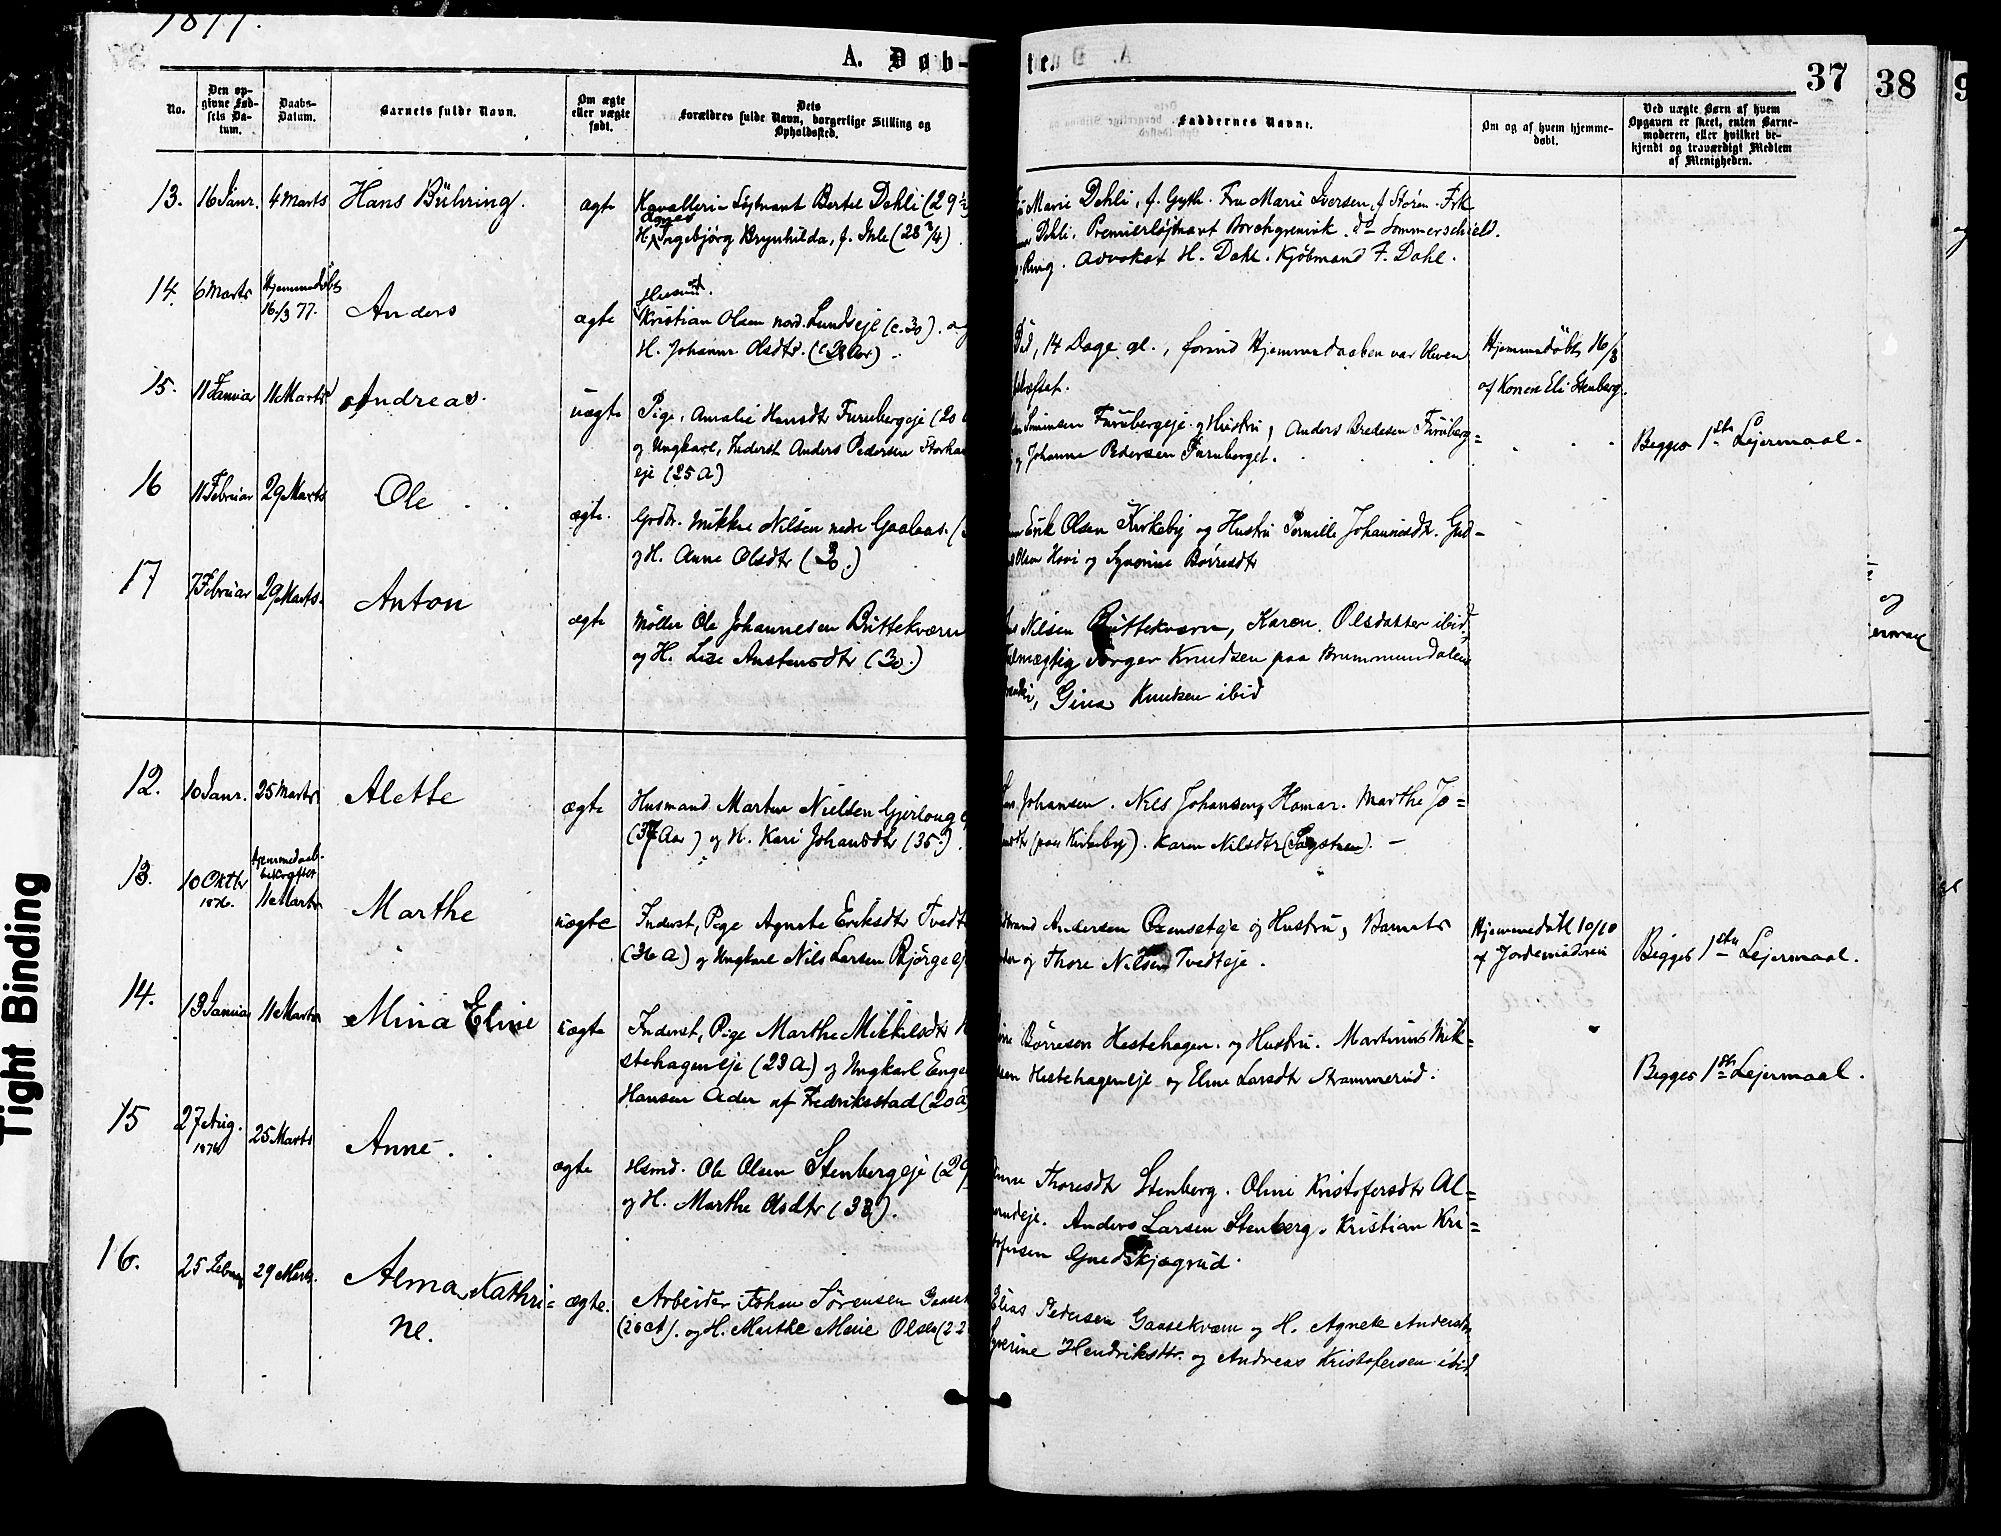 1877.
A. Døb-
te.
37
38
No.
Den op-
givne Fød-
sels Da-
tum.
Daabs-
Datum.
Barnets fulde Navn.
Om ægte
eller uægte
født.
Dets
Forældres fulde Navn, borgerlige Stilling og
Opholdssted.
Faddernes Navne.
Om og af hvem hjemme-
døbt.
Ved uægte Børn af hvem
Opgaven er skeet, enten Barne-
moderen, eller hvilket be-
kjendt og troværdigt Medlem
af Menigheden.
13. 16 Janr. 4 Marts Hans Bühring. ægte Kavalleri-Løjtnant Bertel Dahli (29
Agnes
H. Ingebjørg Brynhilda, f. Ihle (28
Marie Dehli, f. Gyth. Fru Marie Iversen, f. Støren. Frk
Dehli, Premierløjtnant Borchgrevink. do Sommerschield.
Ring. Advokat H. Dahl. Kjøbmand F. Dahl.
14. 6 Marts Hjemmedøbt
16/3 77. Anders ægte
Husmd.
Kristian Olsen nord. Lundseje (c. 30). og
H. Johanne Olsdtr. (28 Aar)
Død, 14 Dage gl., forind Hjemmedaaben var bleven
Hjemmedøbt 16/3
af Konen Eli Stenberg.
15. 11 Januar 11 Marts Andreas uægte Pige, Amalie Hansdtr Furubergeje (20
og Ungkarl, Inderst Anders Pedersen
eje (25 A)
Simensen Furubergeje og Hustru, Anders Bredesen Furuberg=
og Johanne Pedersen Furuberget.
Begges 1ste Lejermaal.
16 11 Februar 29 Marts Ole ægte. Grdbr. Mikkel Nilsen nedre Gaalaas. (
og H. Anne Olsdtr (30.)
Erik Olsen Kirkeby og Hustru Pernille Johannesdtr. Gud-
Olsen Hovi og Synnøve Børresdtr
17 7 Februar 29 Marts. Anton ægte Møller Ole Johannesen Buttekværn
og H. Lise Austensdtr (30.)
Nilsen Buttekværn, Karen Olsdatter ibid,
Fuldmægtig Jørger Knudsen paa Brummundalens
Gina Knudsen ibid
12. 10 Janr. 25 Marts Alette ægte Husmand Martin Nielsen Gjerlaug
(37 Aar) og H. Kari Johansdtr (35.)
Johansen. Nils Johansen, Hamar. Marthe Jo=
(paa Kirkeby). Karen Nilsdtr
13. 10 Oktbr
1876.
Hjemmedaab-
bekræftet
11 Marts Marthe uægte Inderst, Pige Agnete Eriksdtr Tvedt
(36 A) og Ungkarl Nils Larsen Bjørgeej
Andersen og Hustru, Barnets
og Thore Nilsen Tvedteje.
Hjemmedøbt 10/10
af Jordemoderen
Begges 1ste Lejermaal.
14. 13 Januar 11 Marts Mina Eline uægte Inderst, Pige Marthe Mikkelsdtr H
stehageneje (23 A.) og Ungkarl Enge
Hansen Ader af Fredriksstad (20 A
Børresen Hestehagen og Hustru. Martinus Mik=
Hestehageneje og Eline Larsdtr Strammerud.
Begges 1ste Lejermaal.
15 27 Aug.
1876 25 Marts Anne. ægte Hsmd. Ole Olsen Stenbergeje (29
og H. Marthe Olsdtr (33).
Thoresdtr Stenberg. Oline Kristofersdtr Al=
Anders Larsen Stenberg. Kristian Kri=
stofersen
16. 25 Februar 29 Marts. Alma Kathri=
ne. ægte. Arbeider Johan Sørensen
(26 A). og H. Marthe Marie Olsen (22
Elias Pedersen Gaasekværn og H. Agnete Andersdtr
Syverine Hendriksdtr. og Andreas Kristofersen ibid.
Tight Binding